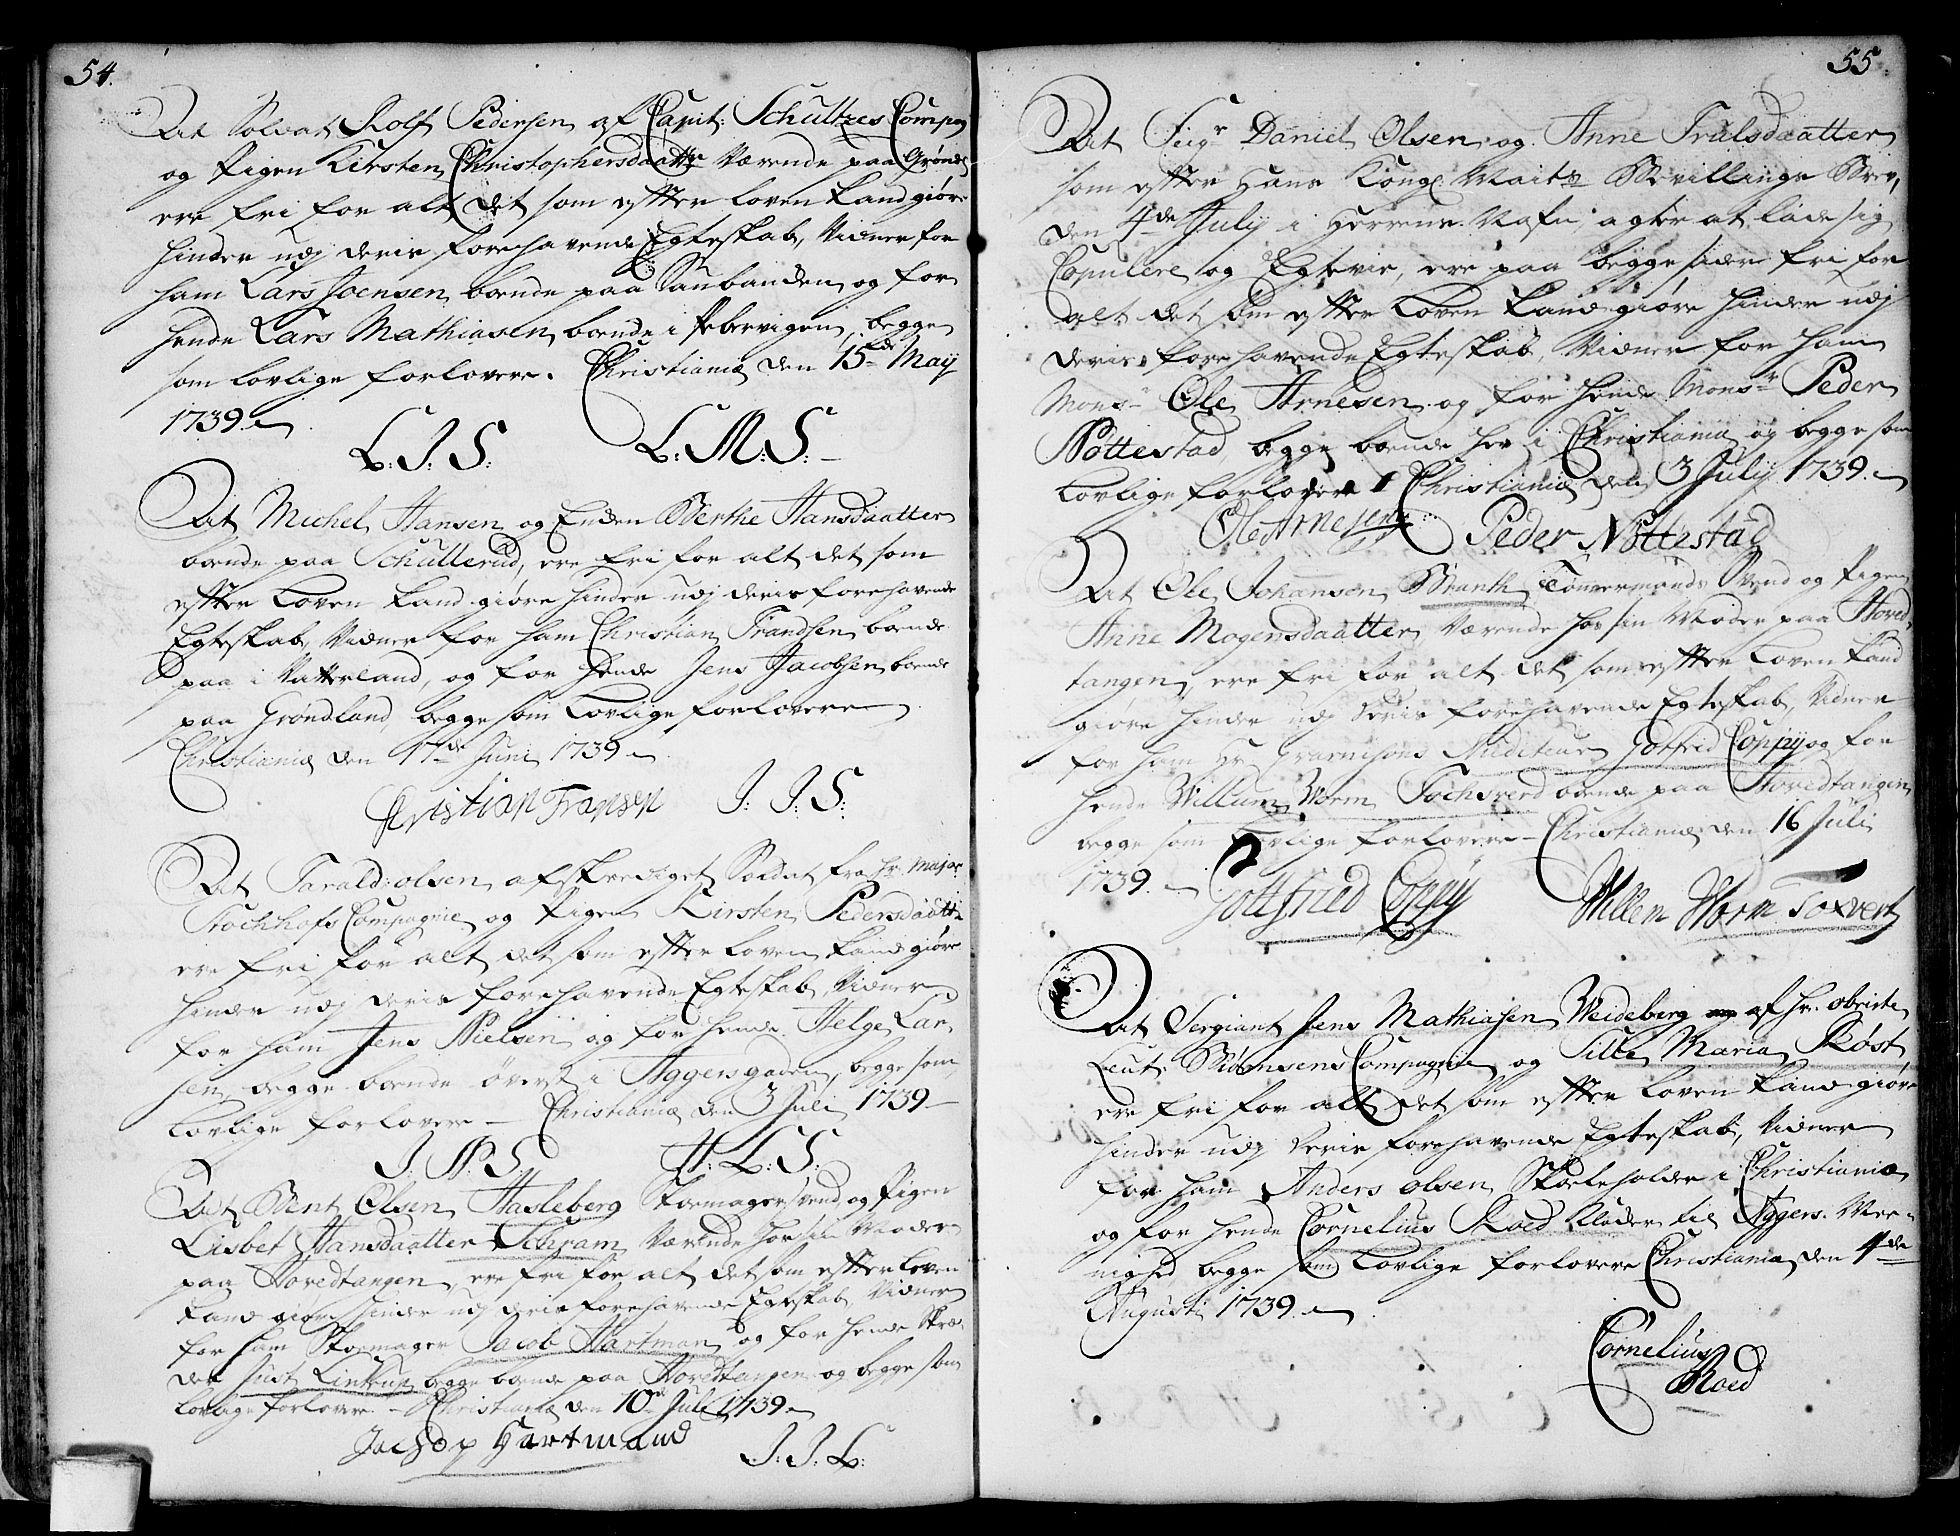 54.
At Soldat Rolf Pedersen af Capit: Schultzes Compag
og Pigen Kirsten Christophersdaatter Værende paa Grønde
ere fri for alt det som efter loven kand giøre
hinder udj deris forehavende Egteskab, Vidner for
ham Lars Joensen boende paa Saubanden og for
hende Lars Mathiasen boende i Pebervigen, begge
som lovlige forlovere. Christiania den 15de Maij
1739.
L: J: S: L: M: S:
At Michel Hansen og Enden Berthe Hansdaatter
boende paa Schullerud, ere fri for alt det som
efter Loven kand giøre hinder udj deris forehavende
Egteskab, Vidner for ham Christian Frandsen boende
paa i Vatterland, og for hende Jens Jacobsen boende
paa Grøndland, begge som Lovlige forlovere
Christiania den 17de Juni 1739
Christian Fransen J: J: S:
At Tarald olsen afskediget Soldat fra Hr: Major
Stochhofs Compagnie og Pigen Kirsten Pedersdaatter
ere fri for alt det som efter loven kand giøre
hinder udj deris forehavende Egteskab, Vidner
for ham Jens Nielsen og for hende Helge Lar-
sen begge boende øverst i Aggersgaden, begge som
Lovlige forlovere Christiania den 3 Juli 1739
J: N: S. H: L: S:
At Bent Olsen Hasleberg Skomagersvend og Pigen
Lisbet Hansdaatter Schram Værende hos sin Moder
paa Hovedtangen, ere fri for alt det som efter Loven
kand giøre hinder udj deris forehavende Egteskab, Vidner
for ham Skomager Jacob Hartman og for hende Skræ-
der Just Lintrup begge boende paa Hovedtangen og begge som
lovlige forlovere Christiania den 10de Juli 1739
Jachop Hartmand J: J: L:
55.
At Sigr Daniel Olsen og Anne Trulsdaatter
som efter Hans Kongl: Maits Bevillings Brev,
den 4de Julij i Herrens Nafn agter at lade sig
Copulere og Egtevie, ere paa begge sider fri for
alt det som efter Loven kand giøre hinder udj
deris forehavende Egteskab, Vidner for ham
Monsr Ole Arnesen og for hende Monsr Peder
Nottestad begge boende her i Christiania og begge som
Lovlige forlovere Christiania den 3 Julij 1739
Ole Arnesen Peder Nottestad
At Ole Johansen Branth Tømermands Svend og Pigen
Anne Mogensdaatter Værende hos sin Moder paa Hoved-
tangen, ere fri for alt det som efter Loven kand
giøre hinder udj deris forehavende Egteskab, Vidner
for ham Hr Guarnisons Auditeur Gotfrid Coppy og for
hende Willum Worm Tochsverd boende paa Hovedtangen
begge som lovlige forlovere Christiania den 16 Juli
1739.
Gottfried Coppÿ Willem Worm Toxvert
At Sergiant Jens Mathiasen Weideberg af Hr. obriste
Leut: Biørnsens Compagnie og Sille Maria Røst
ere fri for alt det som efter loven kand giøre
hinder udj deris forehavende Egteskab, Vidner
for ham Anders olsen Skoleholder i Christiania
og for hende Cornelius Roed Kloder til Aggers Me-
nighed begge som Lovlige forlovere Christiania den 4de
Augusti 1739.
Cornelius
Roed